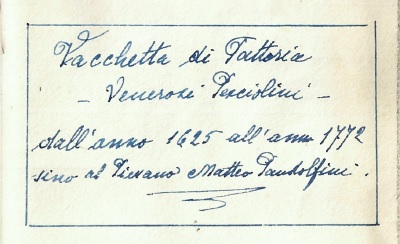 Vacchetta di Fattoria
- Venerosi Pesciolini -
dall'anno 1625 all'anno 1772
sino al Pievano Matteo Pandolfini.